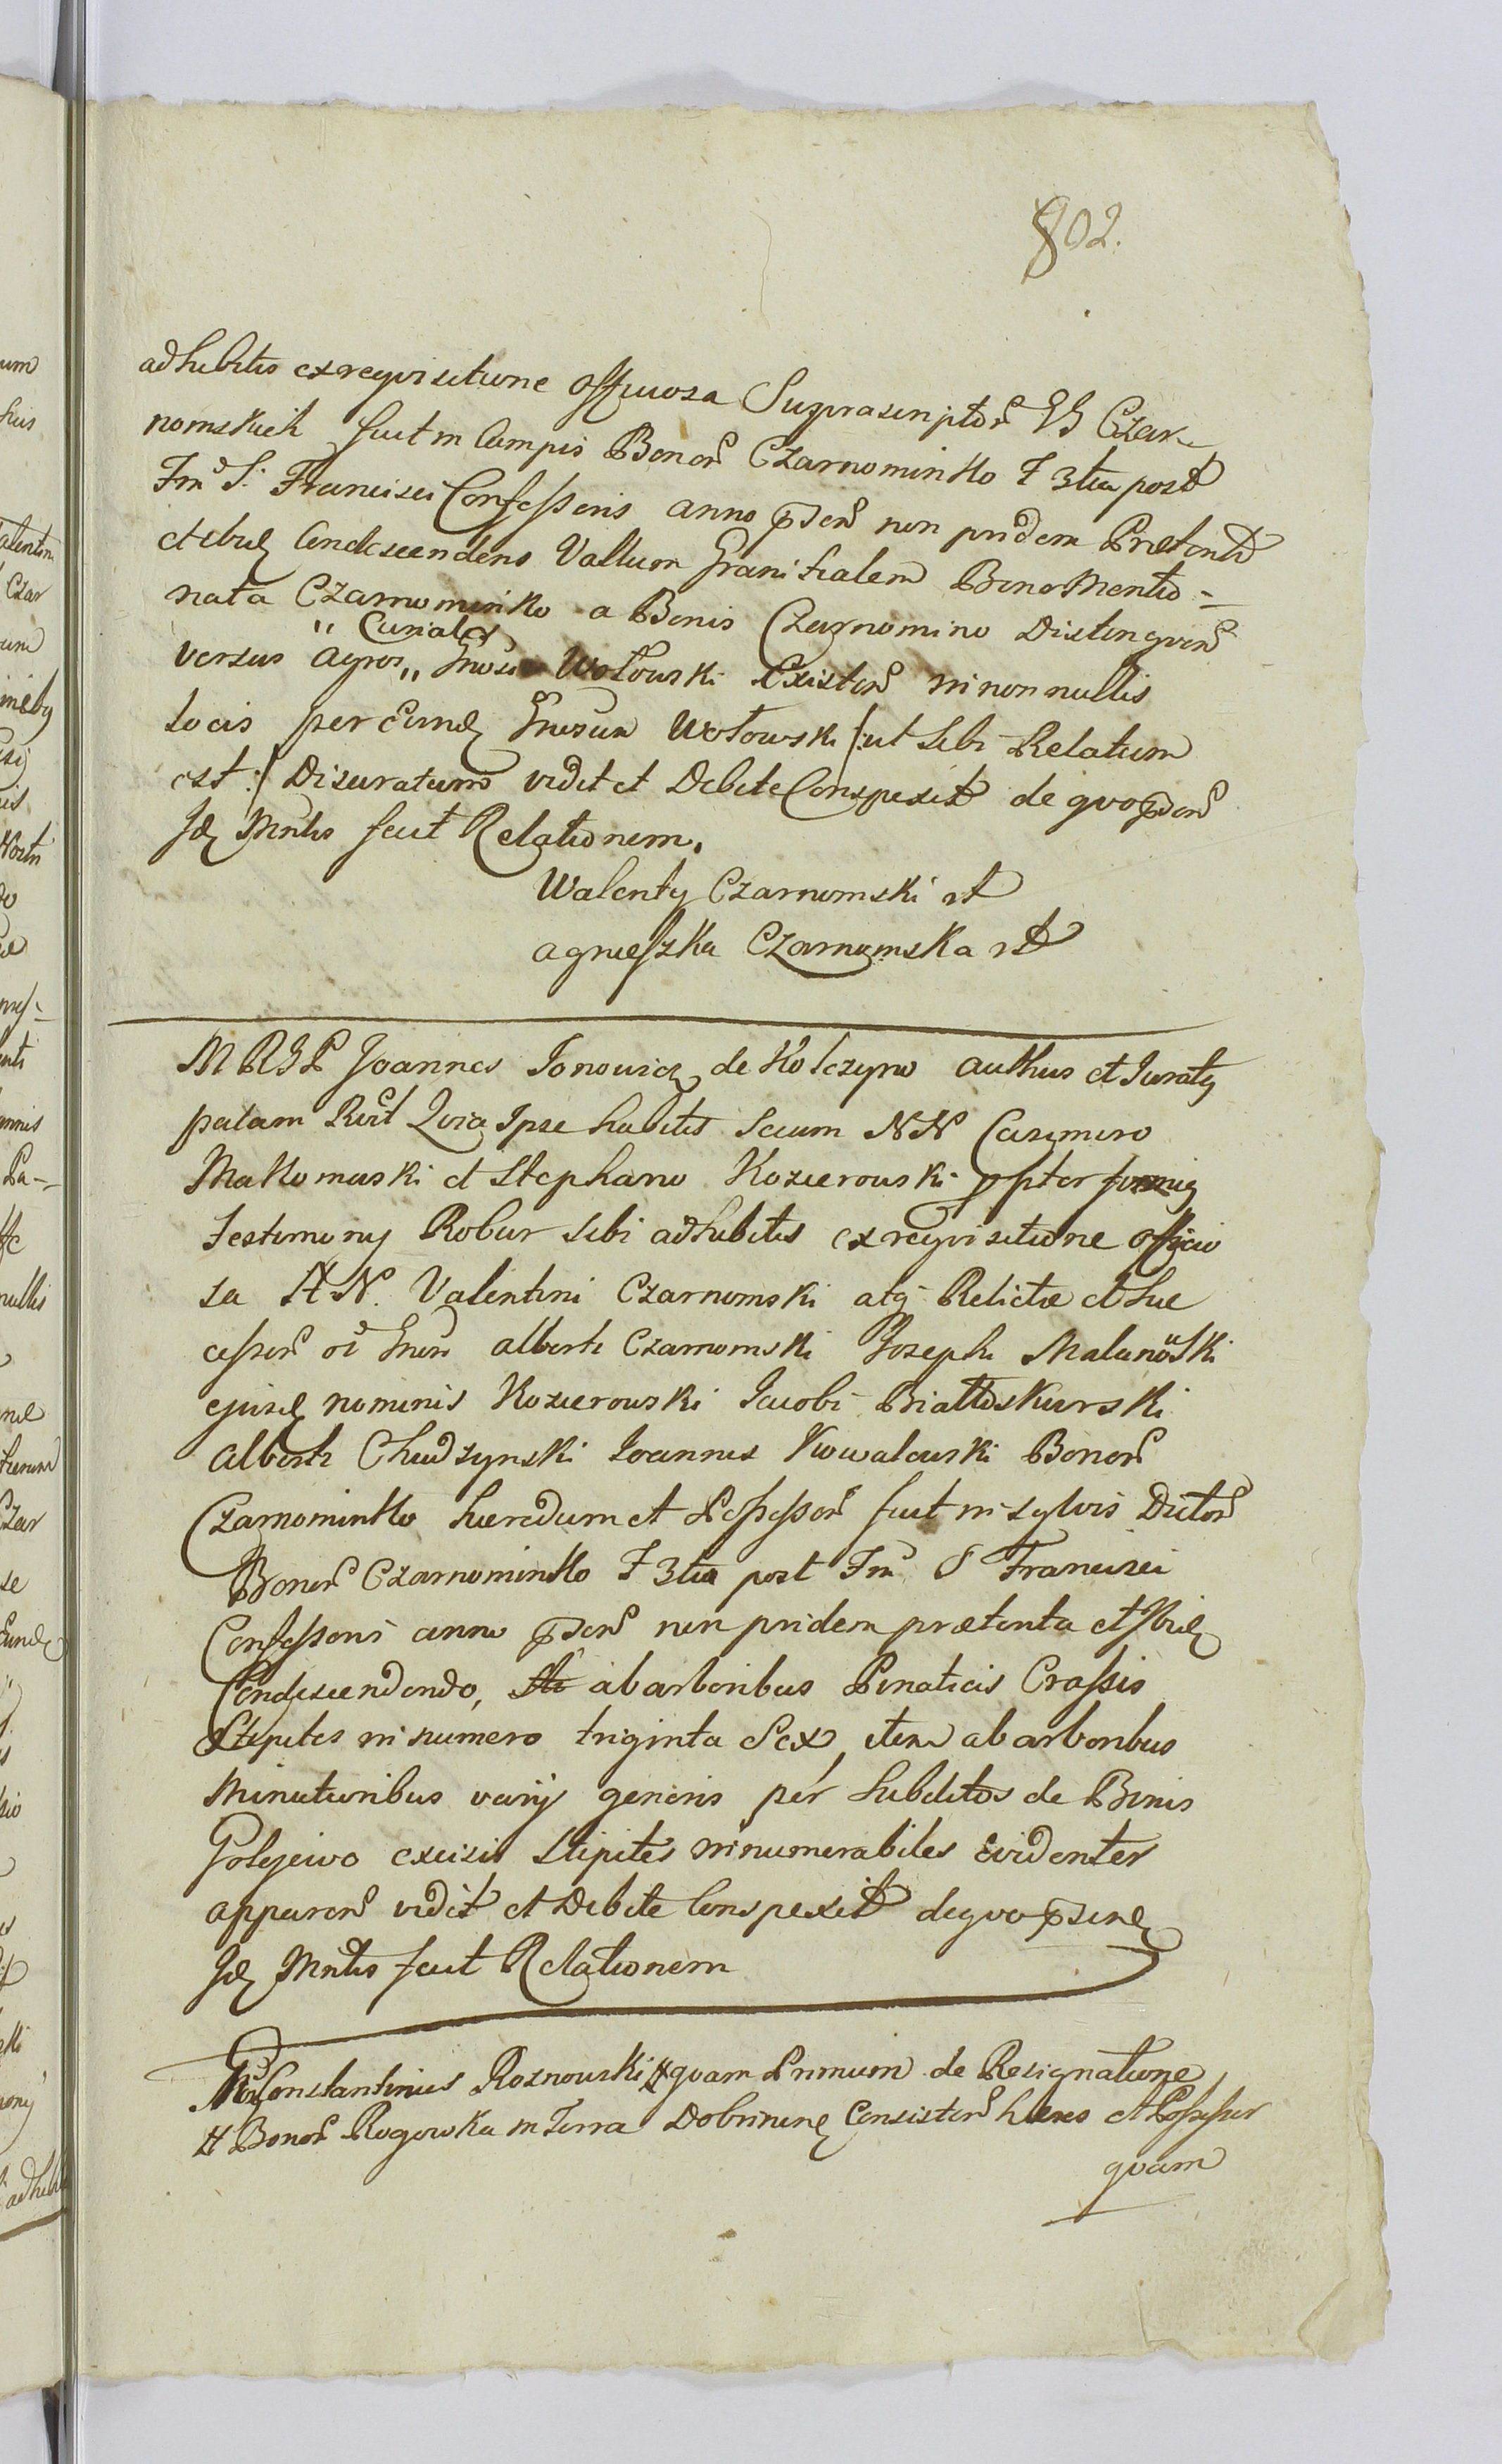 802.
adhibitis ex reqvisitione officiosa Suprascriptor GG Czar-
nomskich fuit in Campis Bonor Czarnominko F 3tia post
Fm S. Francisci Confessoris anno pden non pridem Prætenta
et ibid Condescendens Vallum Granitialem Bona Mentio-
nata Czarnominko a Bonis Czarnomino Distingven
" Curiales
versus Agros " Gnosi Wołowski Existen in non nullis
locis per Eund Gnosum Wołowski /: ut sibi Relatum
est :/ Disuratum vidit et Debite Conspexit de qvo pden
Jd Mntis fecit Relationem.
Walenty Czarnomski rt
Agnieszka Czarnomska rt
M R G P Joannes Jonowicz de Kołczyno authus et Juratq
palam Rvit Qvia Ipse habitis secum NN Casimiro
Makomaski et Stephano Kozierowski ppter formiq
Testimony Robur sibi adhibitis ex reqvisitione officio
sa N. Valentini Czarnomski atq Relictæ et Suc
cessor oi Gnosi Alberti Czarnomski Josephi Malanoski
ejusd nominis Kozierowski Jacobi Białoskurski
Alberti Chudzynski Joannis Kowalewski Bonor
Czarnominko hæredum et Possessor fuit in sylvis Dictor
Bonor Czarnominko F 3tia post Fm S Francisci
Confessoris anno pden non pridem prætenta et Ibid
Condescendendo, ab arboribus Pinaticis Crassis
Stipites in numero triginta Sex, item ab arboribus
Minutioribus varij generis per Subditos de Bonis
Golejewo excisis Stipites innumerabiles Evidenter
apparen vidit et Debite Conspexit de qvo psend
Jd Mntis fecit Relationem
Constantinus Roznowski qvam Primum de Resignatione
Bonor Rogowka in Terra Dobrinen Consisten hæres et Possessor
qvam